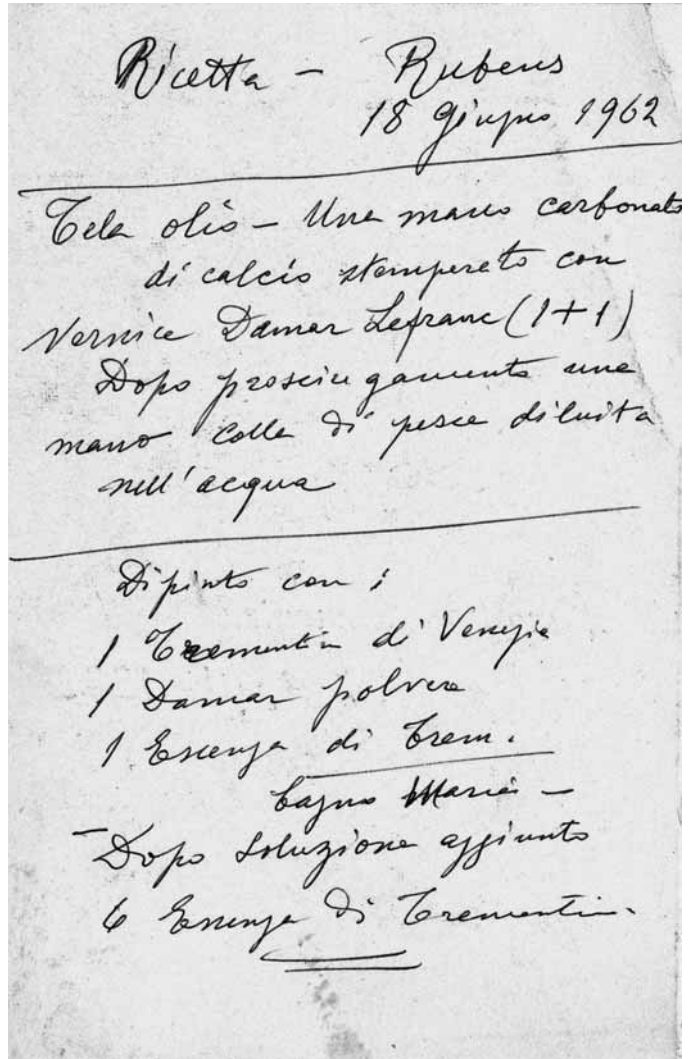 Ricetta — Rubens
18 Giugno 1962
Tela olio — Una mano carbonato
di calcio stemperato con
Vernice Damar Lefranc (1+1)
Dopo prosciugamento una
mano colla di pesce diluita
nell'acqua
Dipinto con:
1 Trementin di Venezia
1 Damar polvere
1 Essenza di trem.
bagno Maria —
— Dopo soluzione aggiunto
6 Essenza di Trementin.